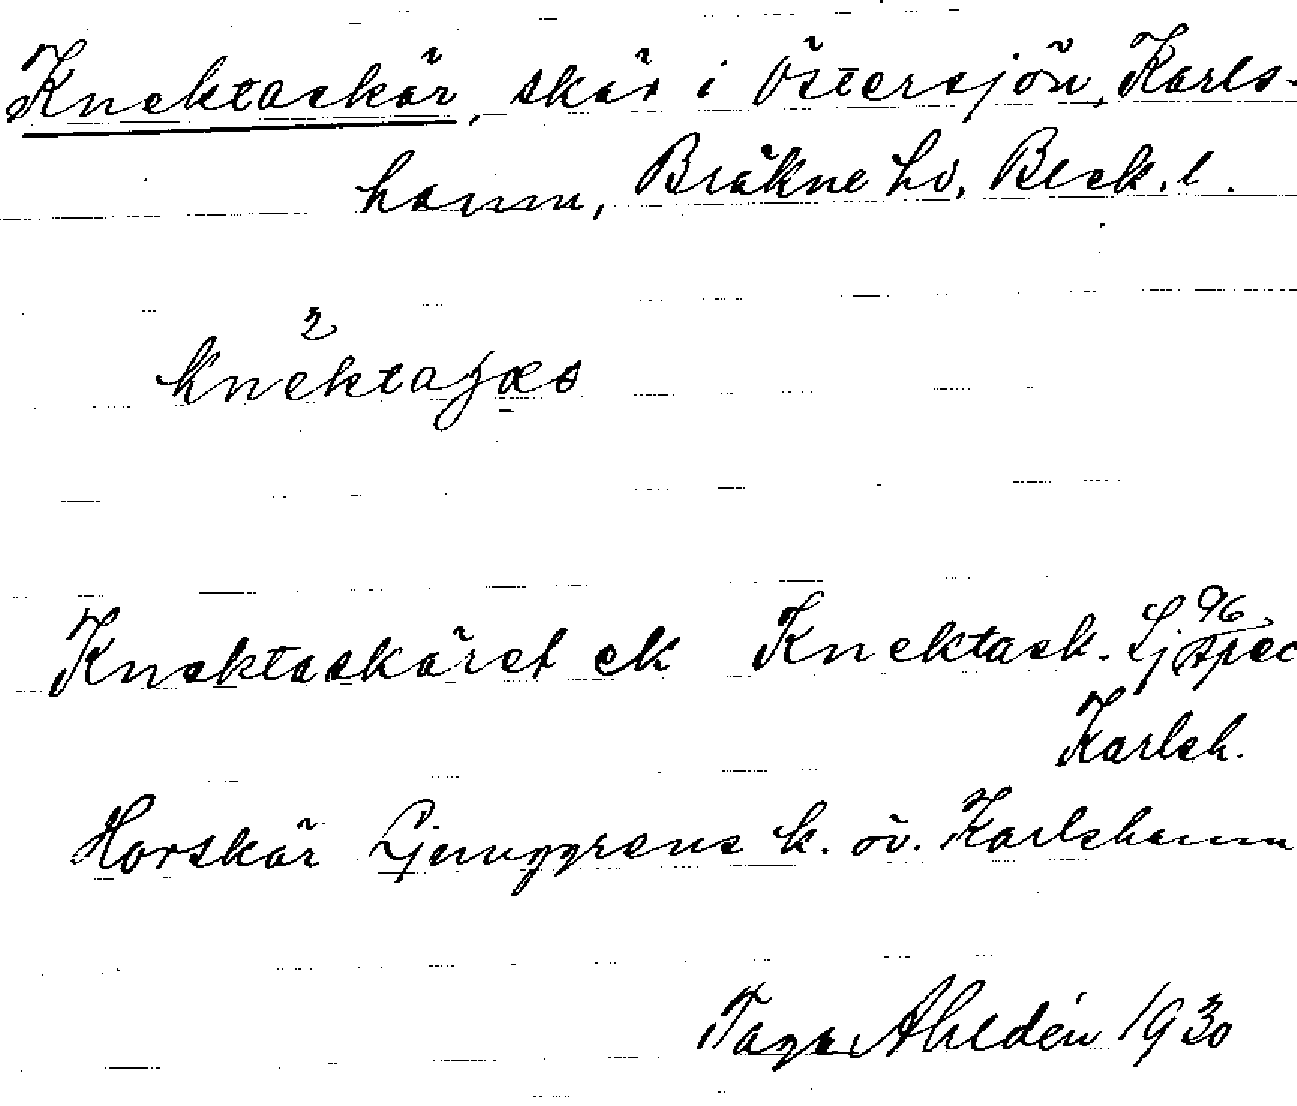 Knektaskär, skär i Östersjön, Karls-
hamn, Bräkne hd, Blek. l.
2
Knektaskäret ek Knektask. Lj 96
Spec
Karlsh.
Horskär Ljunggrens k. öv. Karlshamn
Tage Ahldén 1930